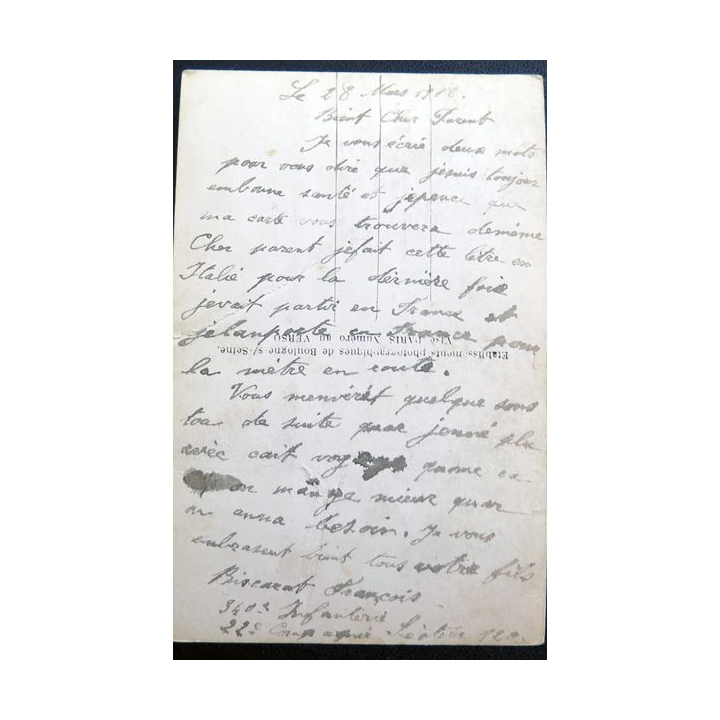 Le 28 Mars 1918.
Bient Cher Parent
Je vous écrié deux mots
pour vous dire que jesuis toujour
embonne santé et jepence que
ma carte vous trouvera demême
Cher parent jefait cette lètre en
Italié pour la dérnière fois
jevait partir en France et
jelanporte en France pour
la mètre en route.
Vous menvérèt quelque sous
tou de suite quar jenné plu
avèc cait voy
on mange mieux quar
on anna besoin. Je vous
embrasent bient tous votre fils
Biscarat François
340e Infanterie
22e Compagnie Sécteur 120.
Etablissements photographiques de Boulogne-s/-Seine.
Visé PARIS Numéro au VERSO